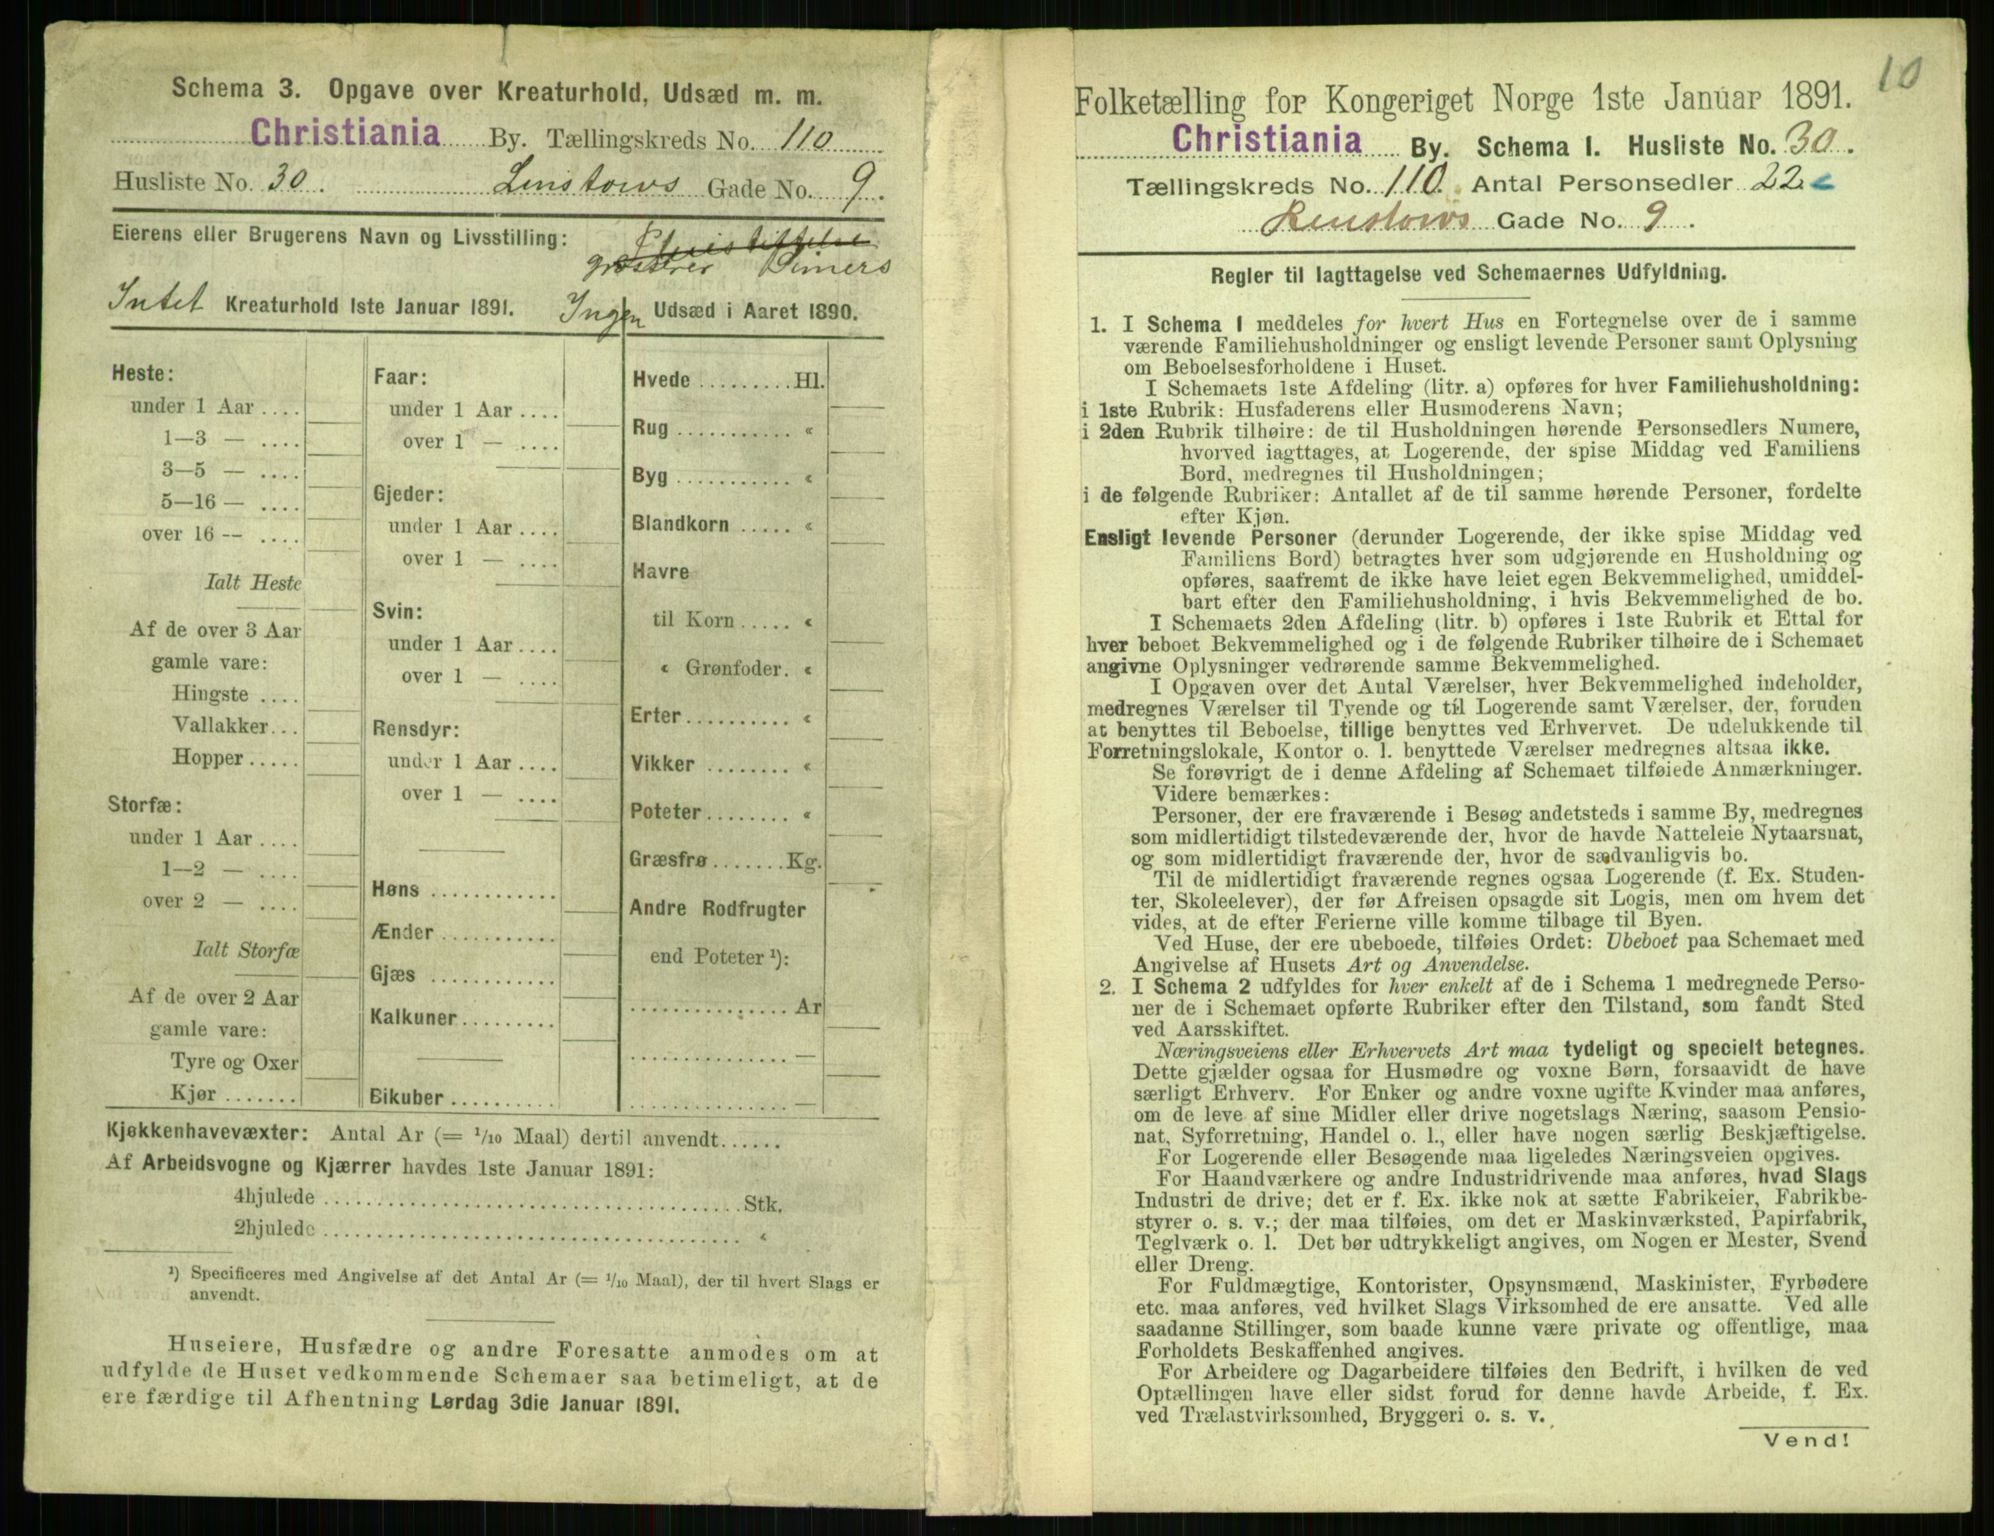 Schema 3. Opgave over Kreaturhold, Udsæd m. m.
Christiania By. Tællingskreds No. 110
Husliste No. 30. Linstows Gade No. 9.
Eierens eller Brugerens Navn og Livsstilling:
grosserer
Intet Kreaturhold 1ste Januar 1891. Ingen Udsæd i Aaret 1890.
Heste:
under 1 Aar ....
1—3 — ....
3—5 — ....
5—16 — ....
over 16 — ....
Ialt Heste
Af de over 3 Aar
gamle vare:
Hingste ....
Vallakker...
Hopper .....
Storfæ:
under 1 Aar ....
1—2 — ....
over 2 — ....
Ialt Storfæ
Af de over 2 Aar
gamle vare:
Tyre og Oxer
Kjør .......
Faar:
under 1 Aar ....
over 1 — ....
Gjeder:
under 1 Aar ....
over 1 — ....
Svin:
under 1 Aar ....
over 1 — ....
Rensdyr:
under 1 Aar ....
over 1 — ....
Høns ............
Ænder ...........
Gjæs ............
Kalkuner.........
Bikuber ..........
Hvede .........Hl.
Rug ........... «
Byg ........... «
Blandkorn ..... «
Havre
til Korn ..... «
« Grønfoder. «
Erter.......... «
Vikker ........ «
Poteter........ «
Græsfrø .......Kg.
Andre Rodfrugter
end Poteter ¹):
............... Ar
............... —
............... —
Kjøkkenhavevæxter: Antal Ar (= 1/10 Maal) dertil anvendt......
Af Arbeidsvogne og Kjærrer havdes 1ste Januar 1891:
4hjulede ........................................Stk.
2hjulede ........................................ «
¹) Specificeres med Angivelse af det Antal Ar (= 1/10 Maal), der til hvert Slags er
anvendt.
Huseiere, Husfædre og andre Foresatte anmodes om at
udfylde de Huset vedkommende Schemaer saa betimeligt, at de
ere færdige til Afhentning Lørdag 3die Januar 1891.
10
Folketælling for Kongeriget Norge 1ste Januar 1891.
Christiania By. Schema I. Husliste No. 30.
Tællingskreds No. 110. Antal Personsedler 22
Linstows Gade No. 9.
Regler til Iagttagelse ved Schemaernes Udfyldning.
1. I Schema 1 meddeles for hvert Hus en Fortegnelse over de i samme
værende Familiehusholdninger og ensligt levende Personer samt Oplysning
om Beboelsesforholdene i Huset.
I Schemaets 1ste Afdeling (litr. a) opføres for hver Familiehusholdning:
i 1ste Rubrik: Husfaderens eller Husmoderens Navn;
i 2den Rubrik tilhøire: de til Husholdningen hørende Personsedlers Numere,
hvorved iagttages, at Logerende, der spise Middag ved Familiens
Bord, medregnes til Husholdningen;
i de følgende Rubriker: Antallet af de til samme hørende Personer, fordelte
efter Kjøn.
Ensligt levende Personer (derunder Logerende, der ikke spise Middag ved
Familiens Bord) betragtes hver som udgjørende en Husholdning og
opføres, saafremt de ikke have leiet egen Bekvemmelighed, umiddel-
bart efter den Familiehusholdning, i hvis Bekvemmelighed de bo.
I Schemaets 2den Afdeling (litr. b) opføres i 1ste Rubrik et Ettal for
hver beboet Bekvemmelighed og i de følgende Rubriker tilhøire de i Schemaet
angivne Oplysninger vedrørende samme Bekvemmelighed.
I Opgaven over det Antal Værelser, hver Bekvemmelighed indeholder,
medregnes Værelser til Tyende og til Logerende samt Værelser, der, foruden
at benyttes til Beboelse, tillige benyttes ved Erhvervet. De udelukkende til
Forretningslokale, Kontor o. l. benyttede Værelser medregnes altsaa ikke.
Se forøvrigt de i denne Afdeling af Schemaet tilføiede Anmærkninger.
Videre bemærkes:
Personer, der ere fraværende i Besøg andetsteds i samme By, medregnes
som midlertidigt tilstedeværende der, hvor de havde Natteleie Nytaarsnat,
og som midlertidigt fraværende der, hvor de sædvanligvis bo.
Til de midlertidigt fraværende regnes ogsaa Logerende (f. Ex. Studen-
ter, Skoleelever), der før Afreisen opsagde sit Logis, men om hvem det
vides, at de efter Ferierne ville komme tilbage til Byen.
Ved Huse, der ere ubeboede, tilføies Ordet: Ubeboet paa Schemaet med
Angivelse af Husets Art og Anvendelse.
2. I Schema 2 udfyldes for hver enkelt af de i Schema 1 medregnede Perso-
ner de i Schemaet opførte Rubriker efter den Tilstand, som fandt Sted
ved Aarsskiftet.
Næringsveiens eller Erhvervets Art maa tydeligt og specielt betegnes.
Dette gjælder ogsaa for Husmødre og voxne Børn, forsaavidt de have
særligt Erhverv. For Enker og andre voxne ugifte Kvinder maa anføres,
om de leve af sine Midler eller drive nogetslags Næring, saasom Pensio-
nat, Syforretning, Handel o. l., eller have nogen særlig Beskjæftigelse.
For Logerende eller Besøgende maa ligeledes Næringsveien opgives.
For Haandværkere og andre Industridrivende maa anføres, hvad Slags
Industri de drive; det er f. Ex. ikke nok at sætte Fabrikeier, Fabrikbe-
styrer o. s. v.; der maa tilføies, om det er Maskinværksted, Papirfabrik,
Teglværk o. l. Det bør udtrykkeligt angives, om Nogen er Mester, Svend
eller Dreng.
For Fuldmægtige, Kontorister, Opsynsmænd, Maskinister, Fyrbødere
etc. maa anføres, ved hvilket Slags Virksomhed de ere ansatte. Ved alle
saadanne Stillinger, som baade kunne være private og offentlige, maa
Forholdets Beskaffenhed angives.
For Arbeidere og Dagarbeidere tilføies den Bedrift, i hvilken de ved
Optællingen have eller sidst forud for denne havde Arbeide, f. Ex.
ved Trælastvirksomhed, Bryggeri o. s. v.
Vend!